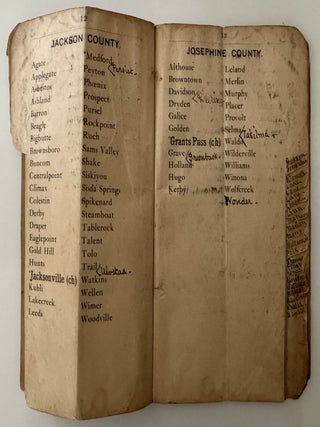 12
JACKSON COUNTY.
Agate
Applegate
Asbestos
Ashland
Barron
Beagle
Bigbutte
Brownsboro
Buncom
Centralpoint
Climax
Colestin
Derby
Draper
Eaglepoint
Gold Hill
Hunts
Jacksonville (ch)
Kubli
Lakecreek
Leeds
"Medford
Peyton
Phoenix
Prospect
Pursel
Rockpoint
Ruch
Sams Valley
Shake
Siskiyou
Soda Springs
Spikenard
Steamboat
Tablerock
Talent
Tolo
Trail
Watkins
Wellen
Wimer
Woodville
13
JOSEPHINE COUNTY.
Althouse
Browntown
Davidson
Dryden
Galice
Golden
"Grants Pass (ch)
Grave
Greenback
Holland
Hugo
Kerby
Leland
Merlin
Murphy
Placer
Provolt
Selma
Takilma
Waldo
Wilderville
Williams
Winona
Wolfcreek
Wonder